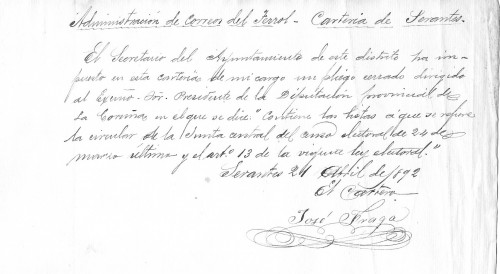 Administración de Correos del Ferrol - Cartería de Serantes.
El Secretario del Ayuntamiento de este distrito ha im-
puesto en esta cartería de mi cargo un pliego cerrado dirigido
al Excmo. Sor. Presidente de la Diputación provincial de
la Coruña, en el que se dice: "Contiene las listas a que se refiere
la circular de la Junta central del censo electoral de 24 de
marzo último y el art.º 13 de la vigente ley electoral."
Serantes 21 Abril de 1892
El Cartero
José Fraga